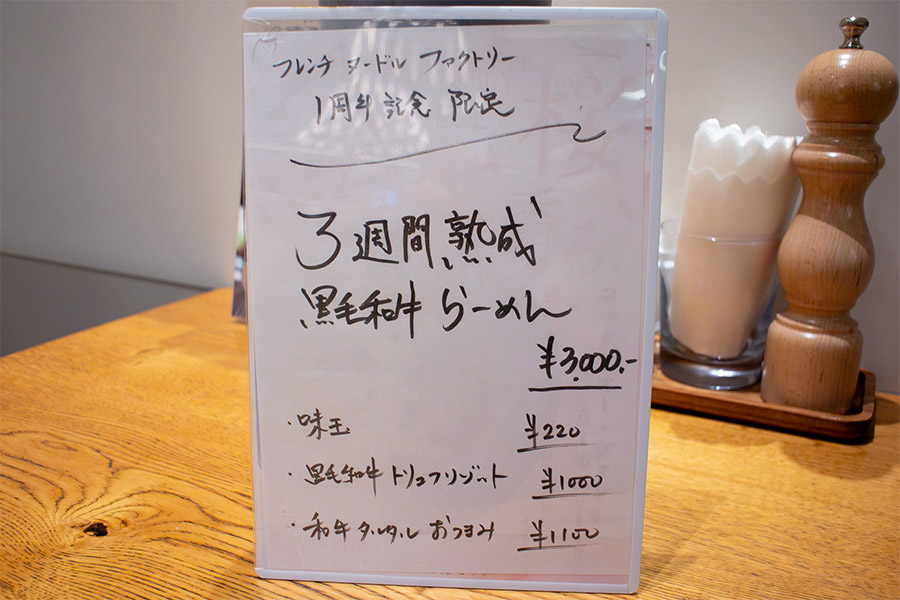 フレンチ ヌードル ファクトリー
1周年記念 限定
3週間熟成
黒毛和牛 らーめん
¥3,000.-
・味玉 ¥220
・黒毛和牛 トリュフリゾット ¥1000
・和牛タルタル おつまみ ¥1100